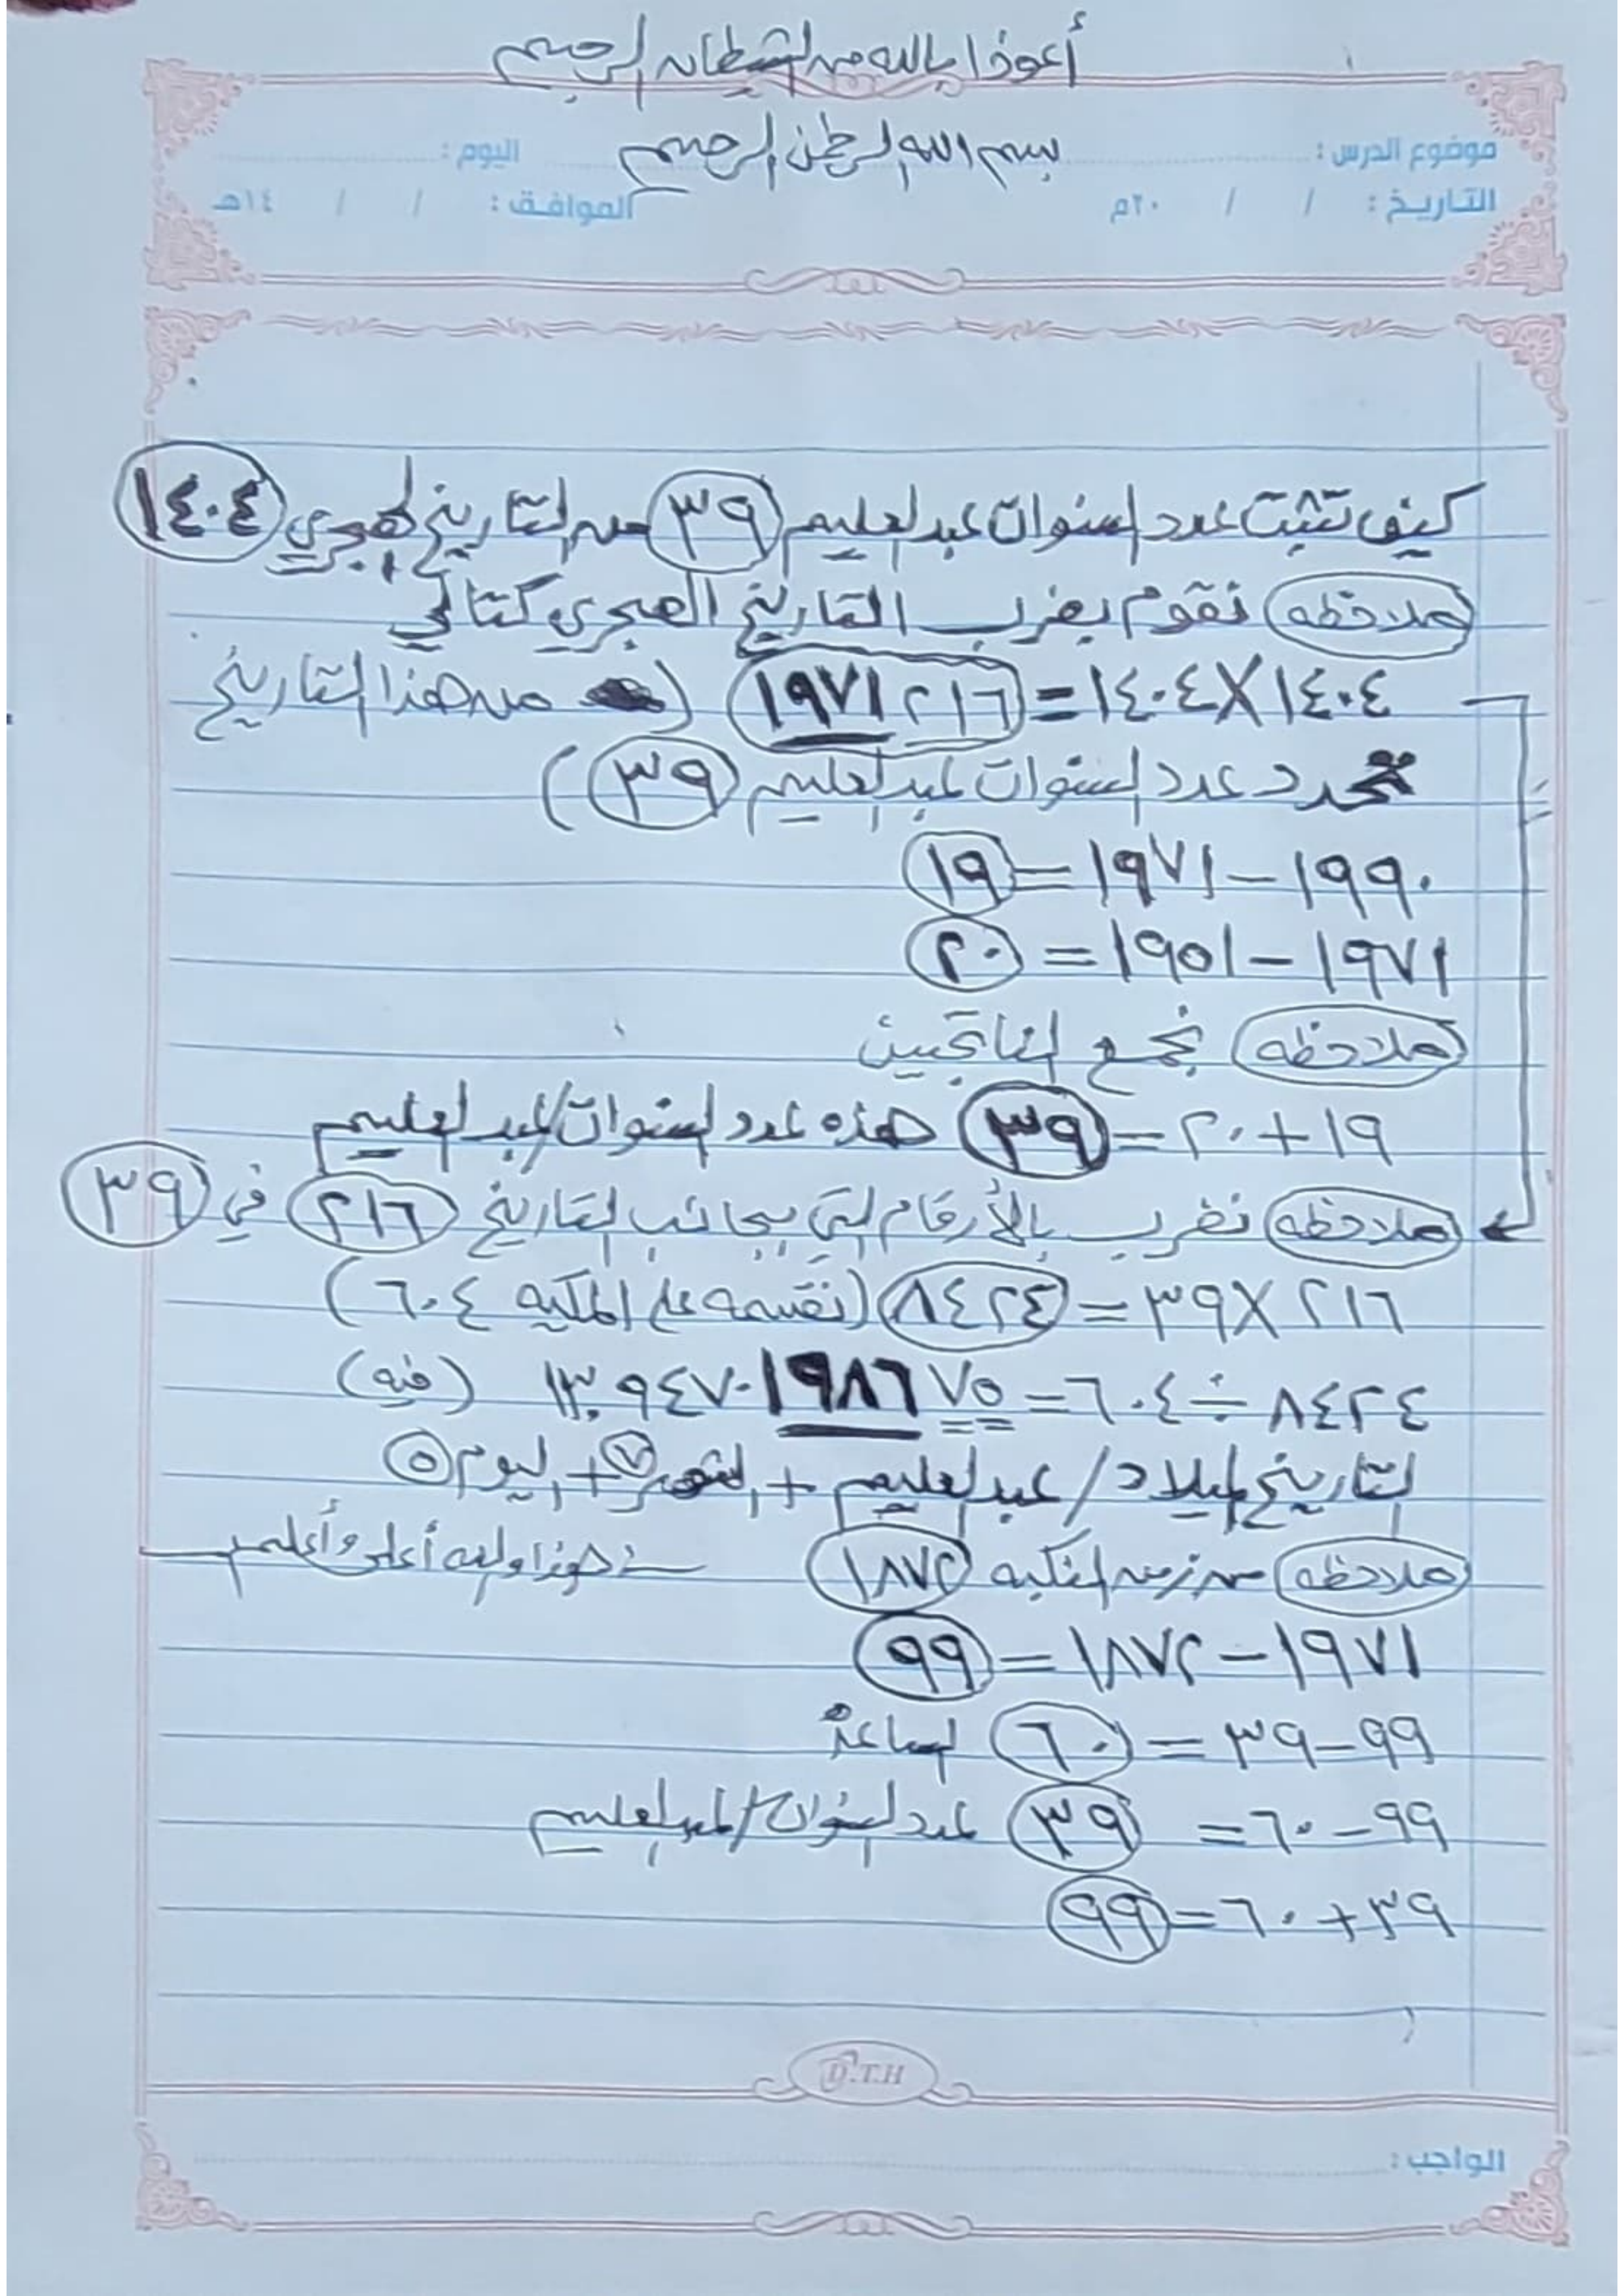 أعوذ بالله من الشيطان الرجيم
بسم الله الرحمن الرحيم
موضوع الدرس : اليوم :
التاريخ : / / ٢٠م الموافق : / / ١٤هـ
كيف تثبت عدد السنوات عبدالعليم ٣٩ من التاريخ الهجري ١٤٠٤
ملاحظه نقوم بضرب التاريخ الهجري كتالي
١٤٠٤ X ١٤٠٤ = ١٩٧١٢١٦ ( من هذا التاريخ
نحدد عدد السنوات عبدالعليم ٣٩ )
١٩٩٠ – ١٩٧١ = ١٩
١٩٧١ – ١٩٥١ = ٢٠
ملاحظه نجمع الناتجين
١٩ + ٢٠ = ٣٩ هذه عدد السنوات/عبدالعليم
ملاحظه نضرب بالأرقام التي بجانب التاريخ ٢١٦ في ٣٩
٢١٦ X ٣٩ = ٨٤٢٤ (نقسمه على المكيه ٦٠٤)
٨٤٢٤ ÷ ٦٠٤ = ١٣.٩٤٧٠١٩٨٦٧٥ (فيه)
التاريخ لميلاد / عبدالعليم + الشهر ٧ + اليوم ٥
ملاحظه من زمن النكبه ١٨٧٢ هذا والله أعلى وأعلم
١٩٧١ – ١٨٧٢ = ٩٩
٩٩ – ٣٩ = ٦٠ الساعة
٩٩ – ٦٠ = ٣٩ عدد السنوات/عبدالعليم
٣٩ + ٦٠ = ٩٩
D.T.H
الواجب :